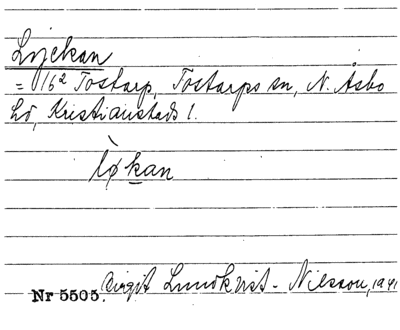 Lyckan
= 16² Tostarp, Tostarps sn, N. Åsbo
hd, Kristianstads l.
lø̀kan
Nr 5505. Birgit Lundkvist-Nilsson, 1941